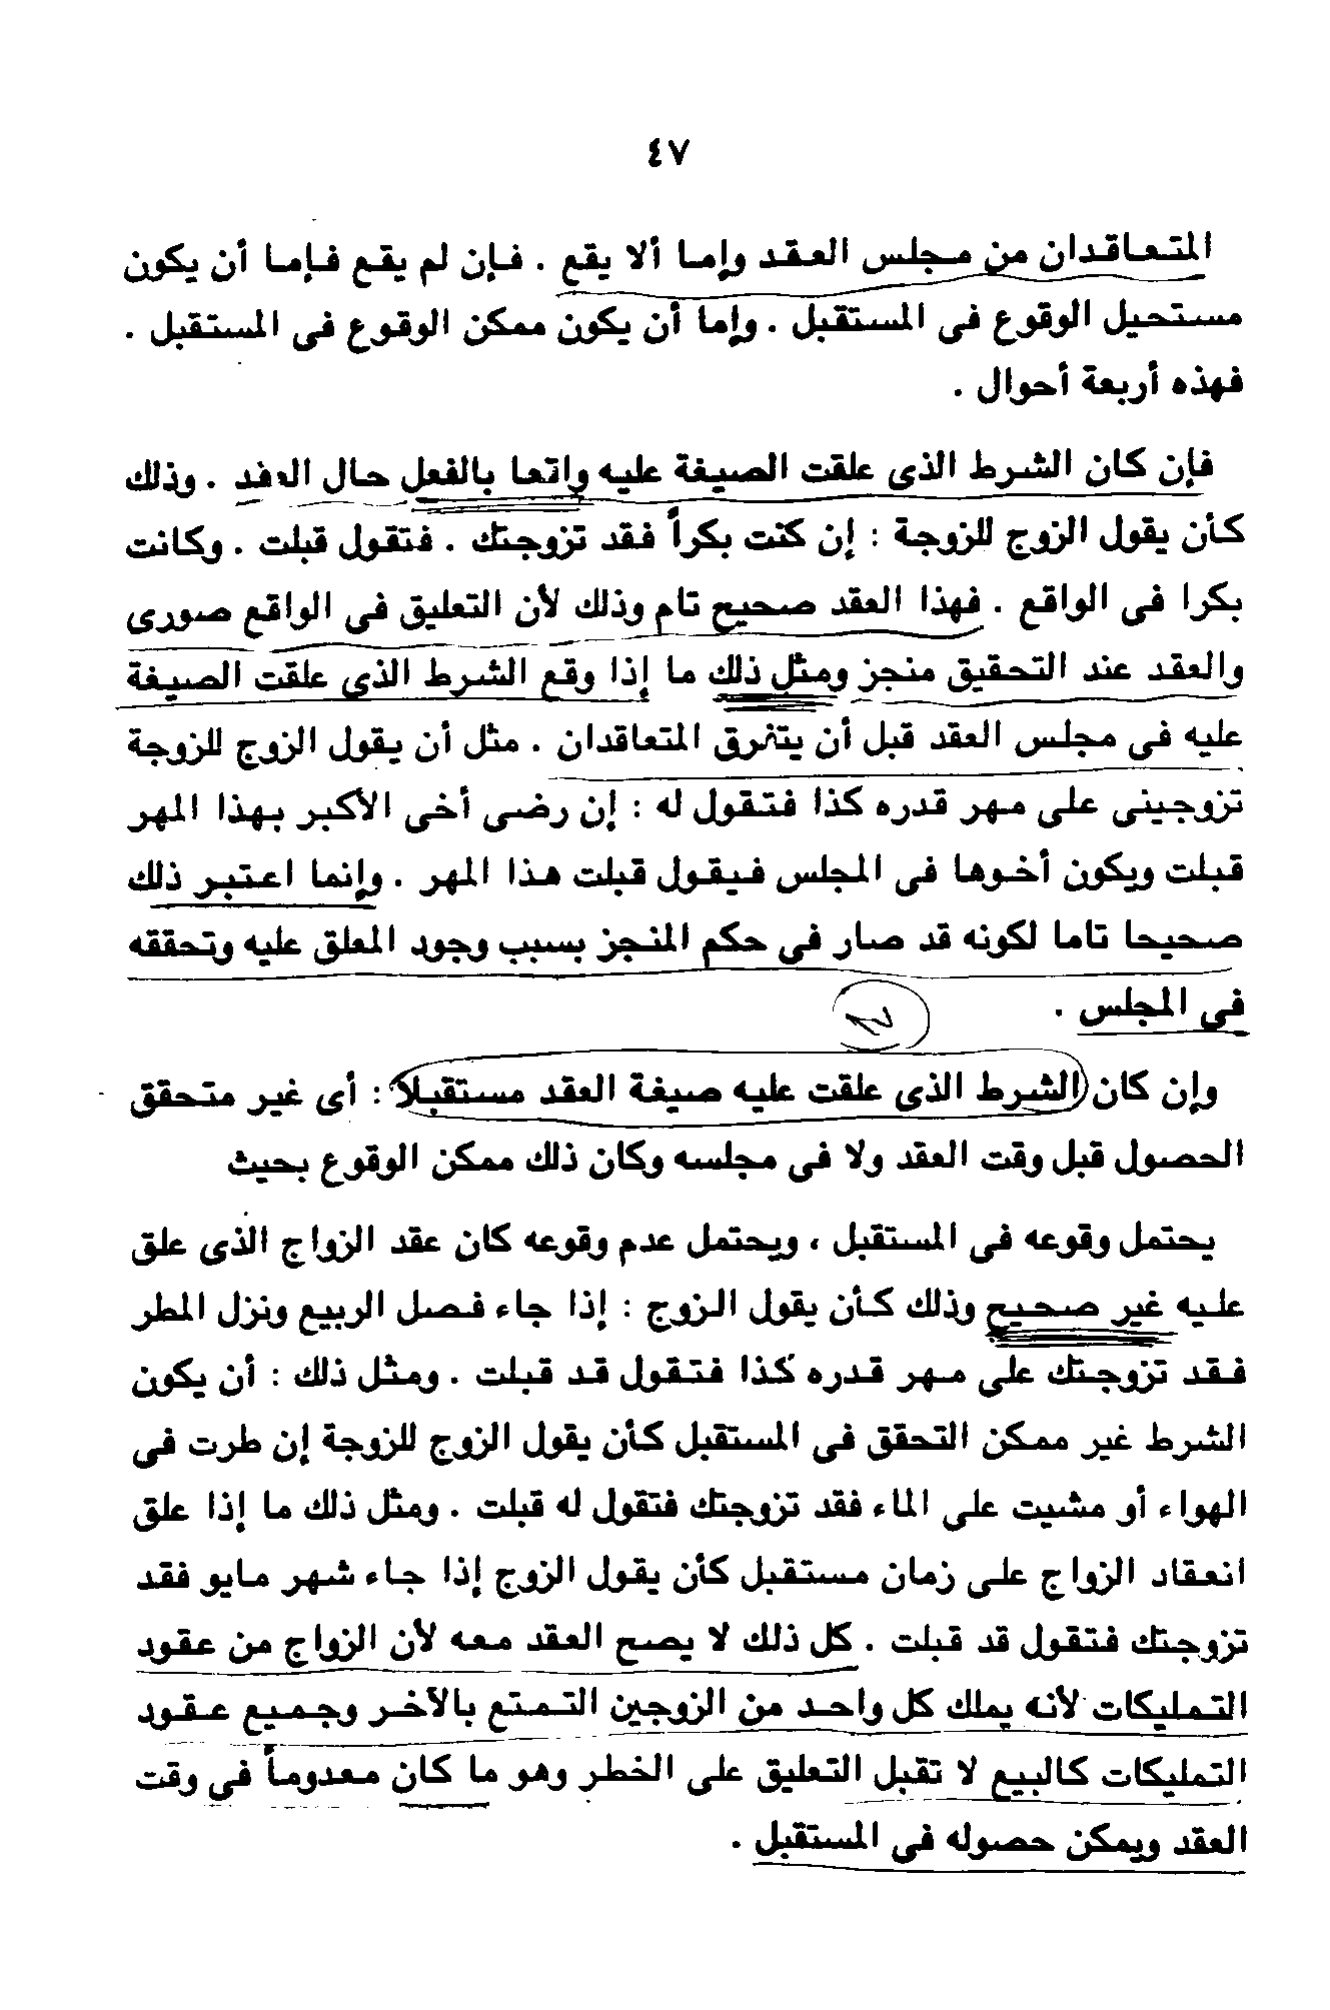 ٤٧
المتعاقدان من مجلس العقد وإما ألا يقع . فإن لم يقع فإما أن يكون
مستحيل الوقوع فى المستقبل . وإما أن يكون ممكن الوقوع فى المستقبل .
فهذه أربعة أحوال .
فإن كان الشرط الذى علقت الصيغة عليه واقعا بالفعل حال العقد . وذلك
كأن يقول الزوج للزوجة : إن كنت بكراً فقد تزوجتك . فتقول قبلت . وكانت
بكرا فى الواقع . فهذا العقد صحيح تام وذلك لأن التعليق فى الواقع صورى
والعقد عند التحقيق منجز ومثل ذلك ما إذا وقع الشرط الذى علقت الصيغة
عليه فى مجلس العقد قبل أن يتفرق المتعاقدان . مثل أن يقول الزوج للزوجة
تزوجينى على مهر قدره كذا فتقول له : إن رضى أخى الأكبر بهذا المهر
قبلت ويكون أخوها فى المجلس فيقول قبلت هذا المهر . وإنما اعتبر ذلك
صحيحا تاما لكونه قد صار فى حكم المنجز بسبب وجود المعلق عليه وتحققه
فى المجلس .
وإن كان الشرط الذى علقت عليه صيغة العقد مستقبلاً : أى غير متحقق
الحصول قبل وقت العقد ولا فى مجلسه وكان ذلك ممكن الوقوع بحيث
يحتمل وقوعه فى المستقبل ، ويحتمل عدم وقوعه كان عقد الزواج الذى علق
عليه غير صحيح وذلك كأن يقول الزوج : إذا جاء فصل الربيع ونزل المطر
فقد تزوجتك على مهر قدره كذا فتقول قد قبلت . ومثل ذلك : أن يكون
الشرط غير ممكن التحقق فى المستقبل كأن يقول الزوج للزوجة إن طرت فى
الهواء أو مشيت على الماء فقد تزوجتك فتقول له قبلت . ومثل ذلك ما إذا علق
انعقاد الزواج على زمان مستقبل كأن يقول الزوج إذا جاء شهر مايو فقد
تزوجتك فتقول قد قبلت . كل ذلك لا يصح العقد معه لأن الزواج من عقود
التمليكات لأنه يملك كل واحد من الزوجين التمتع بالآخر وجميع عقود
التمليكات كالبيع لا تقبل التعليق على الخطر وهو ما كان معدوماً فى وقت
العقد ويمكن حصوله فى المستقبل .